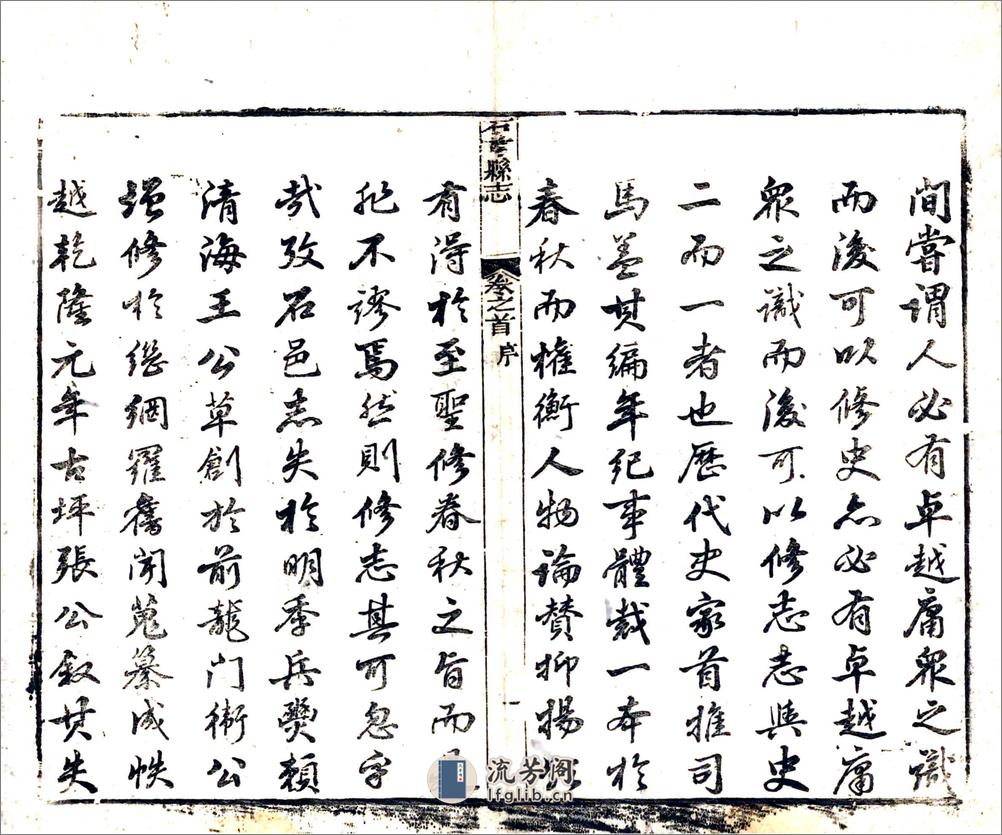 間嘗謂人必有卓越庸眾之識
而後可以修史亦必有卓越庸
眾之識而後可以修志志與史
二而一者也歷代史家首推司
馬蓋其編年紀事體裁一本於
春秋而權衡人物論贊抑揚
石首縣志
卷之首 序
有得於至聖修春秋之旨而
不謬焉然則修志其可忽乎
哉攷石邑志失於明季兵燹賴
清海王公草創於前龍門衛公
修於繼網羅舊聞蒐纂成帙
越乾隆元年古坪張公敘其失
流芳阁
lfglib.cn